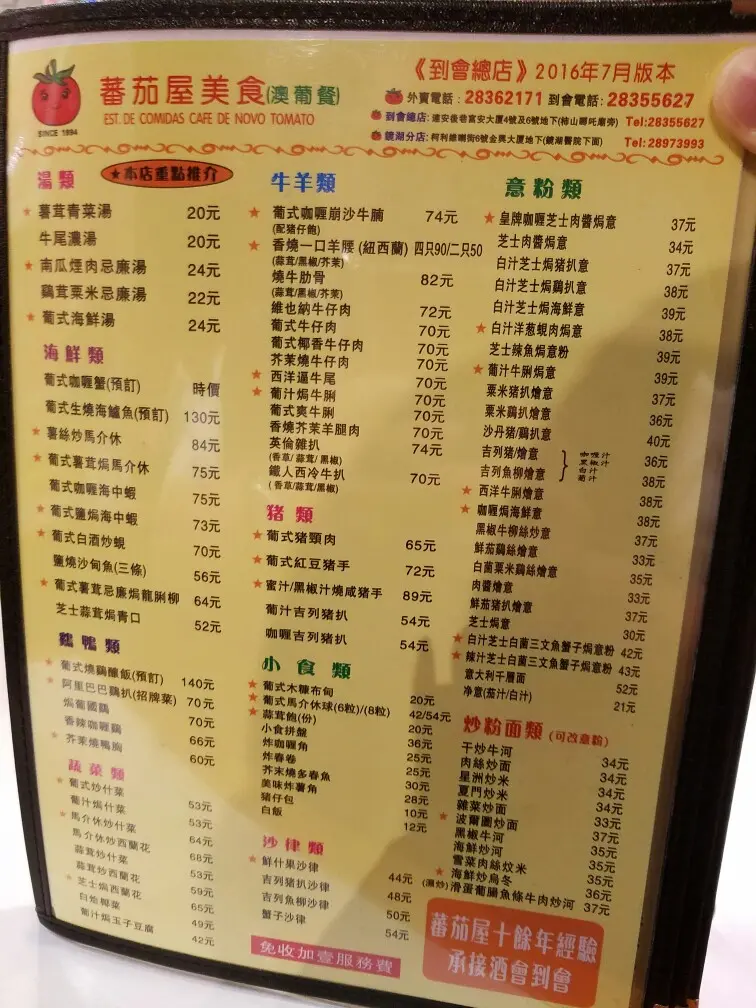 蕃茄屋美食(澳葡餐)
EST. DE COMIDAS CAFE DE NOVO TOMATO
SINCE 1994
《到會總店》2016年7月版本
外賣電話：28362171 到會電話：28355627
到會總店：連安後巷富安大廈4號及6號地下(柿山哪吒廟旁) Tel:28355627
鏡湖分店：柯利維喇街6號金興大廈地下(鏡湖醫院下面) Tel:28973993
★本店重點推介
湯類
★ 薯茸青菜湯 20元
牛尾濃湯 20元
★ 南瓜煙肉忌廉湯 24元
鷄茸粟米忌廉湯 22元
★ 葡式海鮮湯 24元
海鮮類
葡式咖喱蟹(預訂) 時價
葡式生燒海鱸魚(預訂) 130元
★ 薯絲炒馬介休 84元
★ 葡式薯茸焗馬介休 75元
葡式咖喱海中蝦 75元
★ 葡式鹽焗海中蝦 73元
★ 葡式白酒炒蜆 70元
鹽燒沙甸魚(三條) 56元
★ 葡式薯茸忌廉焗龍脷柳 64元
芝士蒜茸焗青口 52元
鷄鴨類
★ 葡式燒鷄釀飯(預訂) 140元
★ 阿里巴巴鷄扒(招牌菜) 70元
焗葡國鷄 70元
香辣咖喱鷄 66元
★ 芥茉燒鴨胸 60元
蔬菜類
★ 葡式炒什菜 53元
葡汁焗什菜 53元
★ 馬介休炒什菜 64元
馬介休炒西蘭花 68元
蒜茸炒什菜 53元
蒜茸炒西蘭花 59元
★ 芝士焗西蘭花 65元
白燴椰菜 49元
葡汁焗玉子豆腐 42元
牛羊類
★ 葡式咖喱崩沙牛腩 74元
(配豬仔飽)
★ 香燒一口羊腰 (紐西蘭) 四只90/二只50
(蒜茸/黑椒/芥茉)
燒牛肋骨 82元
(蒜茸/黑椒/芥茉)
維也納牛仔肉 72元
葡式牛仔肉 70元
葡式椰香牛仔肉 70元
芥茉燒牛仔肉 70元
★ 西洋逼牛尾 70元
★ 葡汁焗牛脷 70元
葡式爽牛脷 70元
香燒芥茉羊腿肉 70元
英倫雜扒 74元
(香草/蒜茸/黑椒)
鐵人西冷牛扒 70元
(香草/蒜茸/黑椒)
猪類
★ 葡式豬頸肉 65元
★ 葡式紅豆豬手 72元
★ 蜜汁/黑椒汁燒咸豬手 89元
葡汁吉列豬扒 54元
咖喱吉列豬扒 54元
小食類
★ 葡式木糠布甸 20元
★ 葡式馬介休球(6粒)/(8粒) 42/54元
★ 蒜茸飽(份) 20元
小食拼盤 36元
炸咖喱角 25元
炸春卷 25元
芥末燒多春魚 30元
美味炸薯角 28元
豬仔包 10元
白飯 12元
沙律類
★ 鮮什果沙律 44元
吉列豬扒沙律 48元
吉列魚柳沙律 50元
蟹子沙律 54元
免收加壹服務費
意粉類
★ 皇牌咖喱芝士肉醬焗意 37元
芝士肉醬焗意 34元
白汁芝士焗豬扒意 37元
白汁芝士焗鷄扒意 38元
白汁芝士焗海鮮意 39元
★ 白汁洋葱蜆肉焗意 38元
芝士辣魚焗意粉 39元
★ 葡汁牛脷焗意 39元
粟米豬扒燴意 37元
粟米鷄扒燴意 36元
沙丹豬/鷄扒意 40元
吉列豬/燴意 36元
吉列魚柳燴意 38元
咖喱汁
黑椒汁
白汁
葡汁
★ 西洋牛脷燴意 38元
★ 咖喱焗海鮮意 38元
黑椒牛柳絲炒意 37元
鮮茄鷄絲燴意 33元
白菌粟米鷄絲燴意 35元
肉醬意 33元
鮮茄豬扒燴意 37元
芝士焗意 30元
★ 白汁芝士白菌三文魚蟹子焗意粉 42元
★ 辣汁芝士白菌三文魚蟹子焗意粉 43元
意大利千層面 52元
净意(茄汁/白汁) 21元
炒粉面類 (可改意粉)
干炒牛河 34元
肉絲炒面 34元
星洲炒米 34元
夏門炒米 34元
雜菜炒面 33元
★ 波爾圖炒面 37元
黑椒牛河 35元
海鮮炒河 35元
雪菜肉絲炆米 35元
★ 海鮮炒烏冬 36元
(濕炒) 滑蛋葡腸魚條牛肉炒河 37元
蕃茄屋十餘年經驗
承接酒會到會